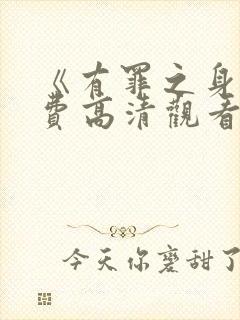 《有罪之身
費高清觀看
今天你磨甜了